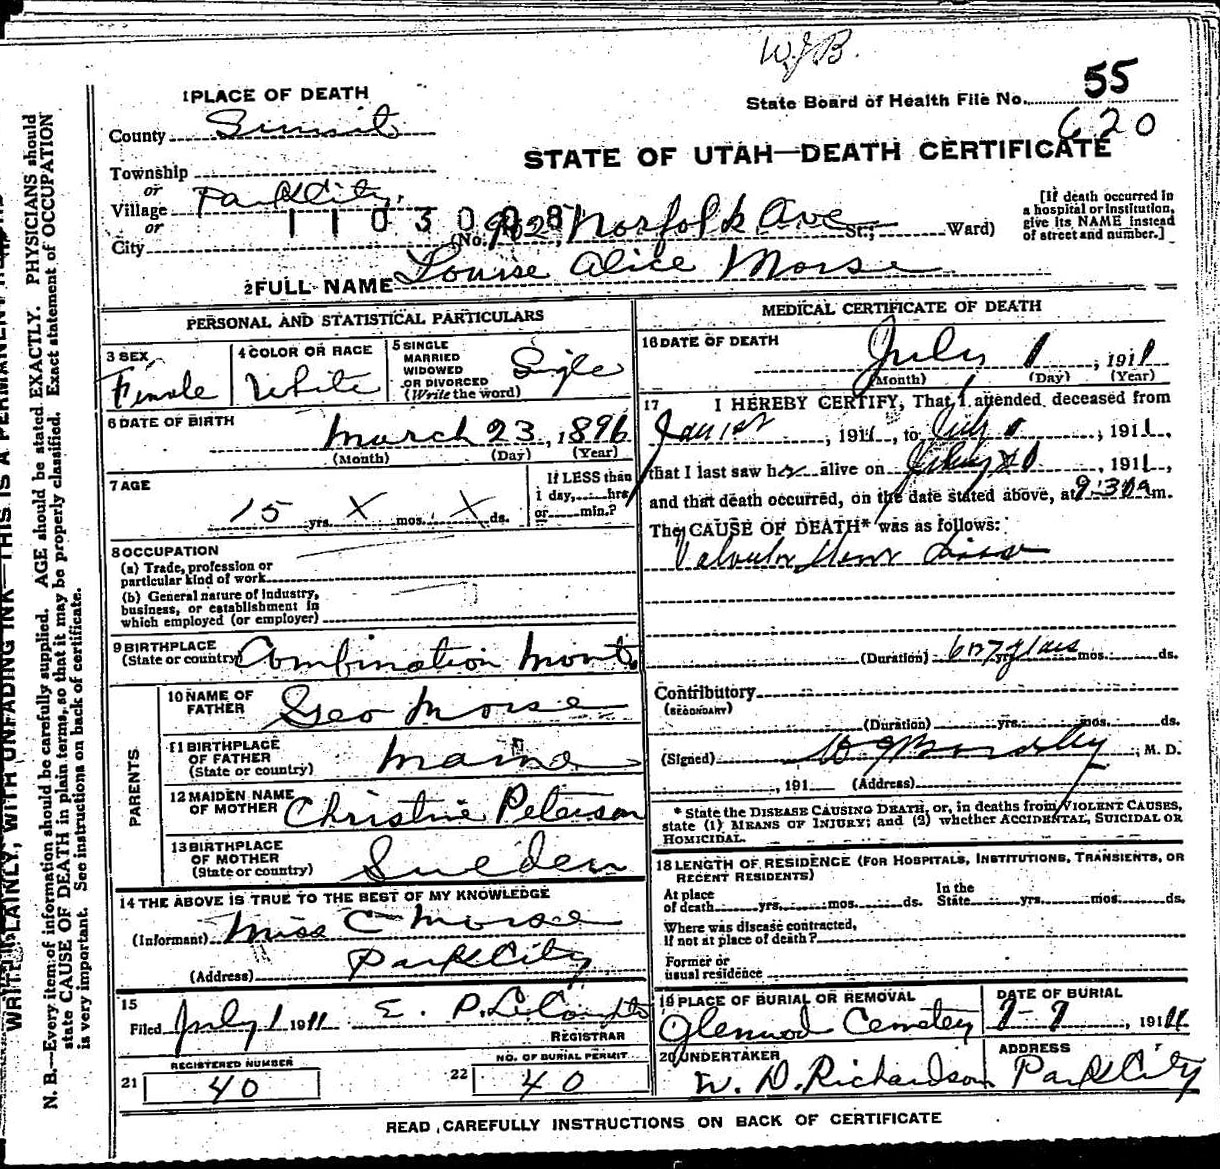 W.J.B.
1 PLACE OF DEATH
State Board of Health File No. 55
620
County Summit
STATE OF UTAH—DEATH CERTIFICATE
Township
or
Village Park City.
or
City (No. 962 Norfolk Ave St.; Ward)
[If death occurred in
a hospital or institution,
give its NAME instead
of street and number.]
2 FULL NAME Louise Alice Morse
PERSONAL AND STATISTICAL PARTICULARS
3 SEX Female
4 COLOR OR RACE White
5 SINGLE
MARRIED
WIDOWED
OR DIVORCED
(Write the word) Single
6 DATE OF BIRTH
March 23, 1896
(Month) (Day) (Year)
7 AGE
15 yrs. X mos. X ds.
If LESS than
1 day, hrs
or min.?
8 OCCUPATION
(a) Trade, profession or
particular kind of work
(b) General nature of industry,
business, or establishment in
which employed (or employer)
9 BIRTHPLACE
(State or country) Combination Mont.
PARENTS
10 NAME OF
FATHER Geo Morse
11 BIRTHPLACE
OF FATHER
(State or country) Maine
12 MAIDEN NAME
OF MOTHER Christine Peterson
13 BIRTHPLACE
OF MOTHER
(State or country) Sweden
14 THE ABOVE IS TRUE TO THE BEST OF MY KNOWLEDGE
(Informant) Miss C Morse
(Address) Park City
15
Filed July 1 1911 E. P. 
REGISTRAR
REGISTERED NUMBER
21 40
NO. OF BURIAL PERMIT
22 40
MEDICAL CERTIFICATE OF DEATH
16 DATE OF DEATH
July 1, 1911
(Month) (Day) (Year)
17 I HEREBY CERTIFY, That I attended deceased from
Jan 1st, 1911, to July 1, 1911,
that I last saw her alive on , 1911,
and that death occurred, on the date stated above, at 9:30 a m.
The CAUSE OF DEATH* was as follows:
Valvular Heart Disease
(Duration) 6 or 7 years yrs. mos. ds.
Contributory
(SECONDARY)
(Duration) yrs. mos. ds.
(Signed) M. D.
, 191 (Address)
* State the DISEASE CAUSING DEATH, or, in deaths from VIOLENT CAUSES,
state (1) MEANS OF INJURY; and (2) whether ACCIDENTAL, SUICIDAL OR
HOMICIDAL.
18 LENGTH OF RESIDENCE (FOR HOSPITALS, INSTITUTIONS, TRANSIENTS, OR
RECENT RESIDENTS)
At place
of death yrs. mos. ds.
In the
State yrs. mos. ds.
Where was disease contracted,
if not at place of death?
Former or
usual residence
19 PLACE OF BURIAL OR REMOVAL
Glenwood Cemetery
DATE OF BURIAL
, 1911
20 UNDERTAKER
W. D. Richardson
ADDRESS
Park City
READ CAREFULLY INSTRUCTIONS ON BACK OF CERTIFICATE
WRITE PLAINLY, WITH UNFADING INK—THIS IS A PERMANENT
N. B.—Every item of information should be carefully supplied. AGE should be stated EXACTLY. PHYSICIANS should
state CAUSE OF DEATH in plain terms, so that it may be properly classified. Exact statement of OCCUPATION
is very important. See instructions on back of certificate.